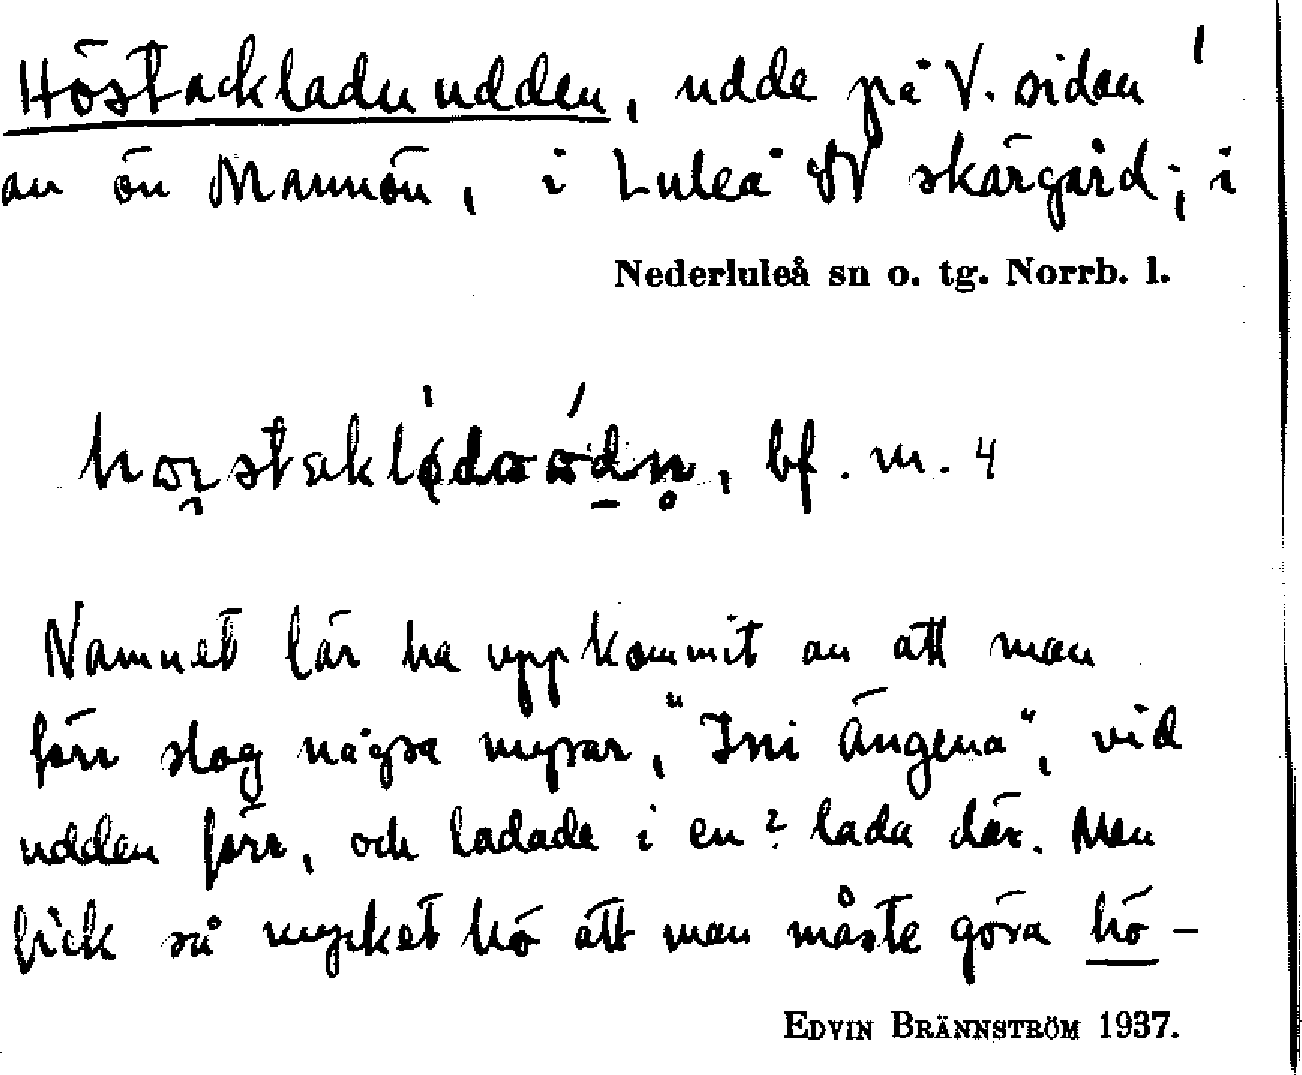 Höstackladuudden, udde på V. sidan
av ön Mannön, i Luleå NV skärgård; i
Nederluleå sn o. tg. Norrb. l.
bf. m. 4
Namnet lär ha uppkommit av att man
förr slog några myrar, "Ini Ängena", vid
udden förr, och ladade i en? lada där. Men
fick så mycket hö att man måste göra hö-
EDVIN BRÄNNSTRÖM 1937.